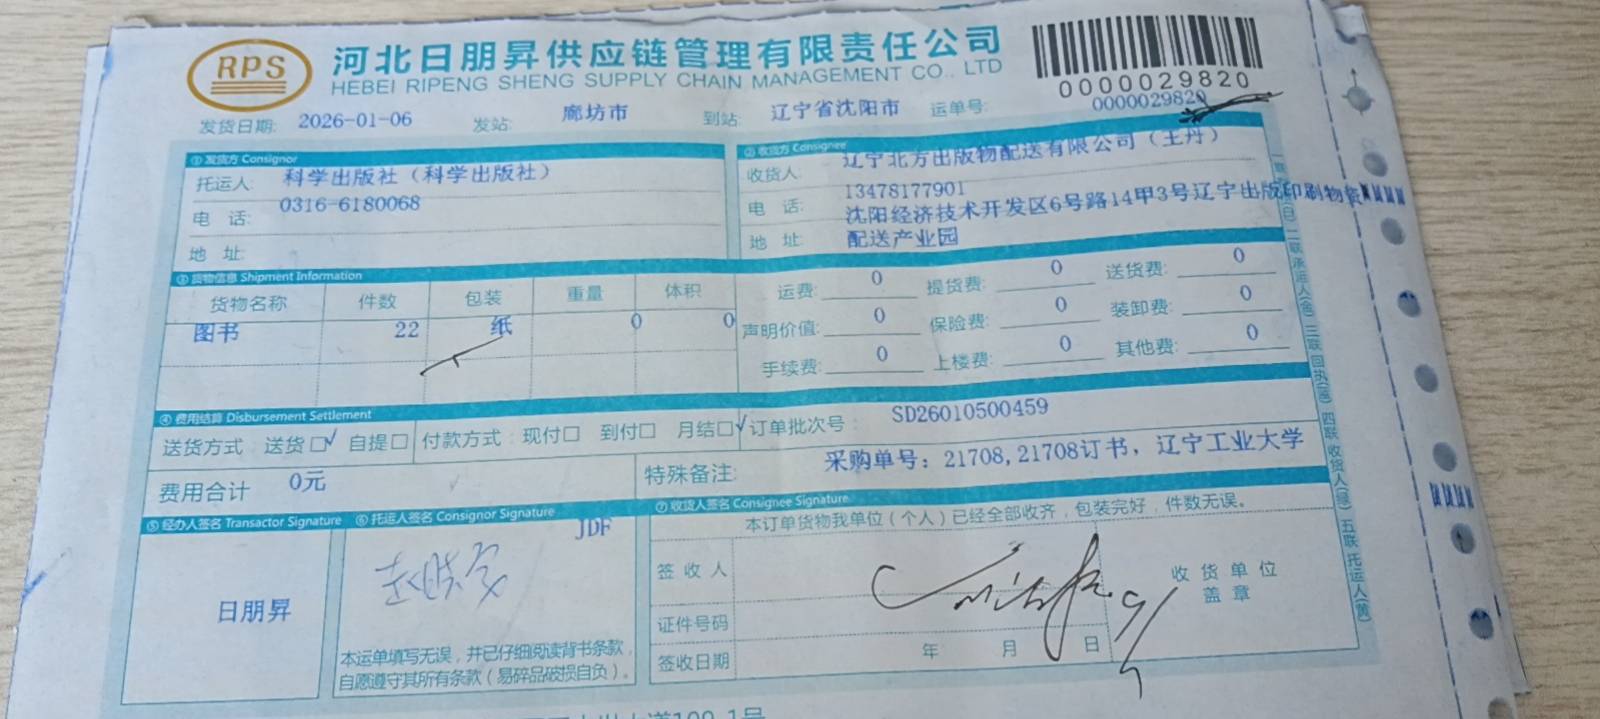 RPS
河北日朋昇供应链管理有限责任公司
HEBEI RIPENG SHENG SUPPLY CHAIN MANAGEMENT CO., LTD
0000029820
发货日期: 2026-01-06 发站: 廊坊市 到站: 辽宁省沈阳市 运单号: 0000029820
① 发货方 Consignor
托运人: 科学出版社（科学出版社）
电 话: 0316-6180068
地 址:
② 收货方 Consignee
收货人: 辽宁北方出版物配送有限公司（王丹）
电 话: 13478177901
地 址: 沈阳经济技术开发区6号路14甲3号辽宁出版印刷物资
配送产业园
③ 货物信息 Shipment Information
货物名称 件数 包装 重量 体积
图书 22 纸 0 0
运费: 0 提货费: 0 送货费: 0
声明价值: 0 保险费: 0 装卸费: 0
手续费: 0 上楼费: 0 其他费: 0
④ 费用结算 Disbursement Settlement
送货方式: 送货□√ 自提□ 付款方式: 现付□ 到付□ 月结□√ 订单批次号: SD26010500459
费用合计 0元
特殊备注: 采购单号: 21708,21708订书, 辽宁工业大学
⑤ 经办人签名 Transactor Signature
日朋昇
⑥ 托运人签名 Consignor Signature
JDF
本运单填写无误，并已仔细阅读背书条款，
自愿遵守其所有条款（易碎品破损自负）。
⑦ 收货人签名 Consignee Signature
本订单货物我单位（个人）已经全部收齐，包装完好，件数无误。
签收人
证件号码
签收日期 年 月 日
收货单位
盖章
二联承运人 三联回执 四联收货人 五联托运人(黄)